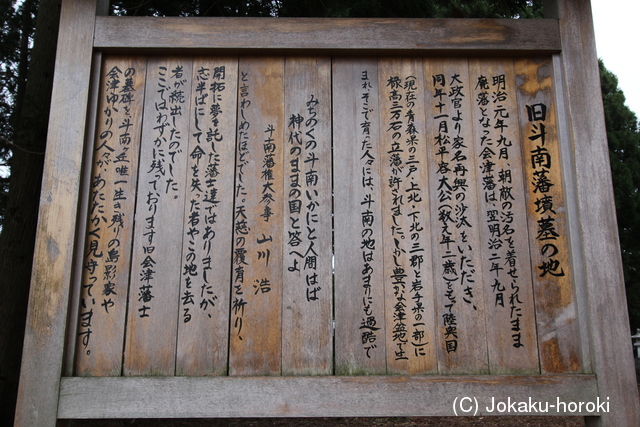 旧斗南藩墳墓の地
明治元年九月、朝敵の汚名を着せられたまま
廃藩となった会津藩は、翌明治二年九月
大政官より家名再興の沙汰をいただき、
同年十一月松平容大公(数え年二歳)をもって陸奥国
(現在の青森県の三戸・上北・下北の三郡と岩手県の一部)に
禄高三万石の立藩が許されました。しかし豊かな会津盆地で生
まれそこで育った人々には、斗南の地はあまりにも過酷で
みちのくの斗南いかにと人問はば
神代のままの国と答へよ
斗南藩権大参事 山川 浩
と言わしめたほどでした。天慈の覆育を祈り、
開拓に夢を託した藩士達ではありましたが、
志半ばにして命を失た者やこの地を去る
者が続出したのでした。
ここではわずかに残っております旧会津藩士
の墓碑を、斗南丘唯一生き残りの島影家や
会津ゆかりの人々が、あたたかく見守っています。
(C) Jokaku-horoki